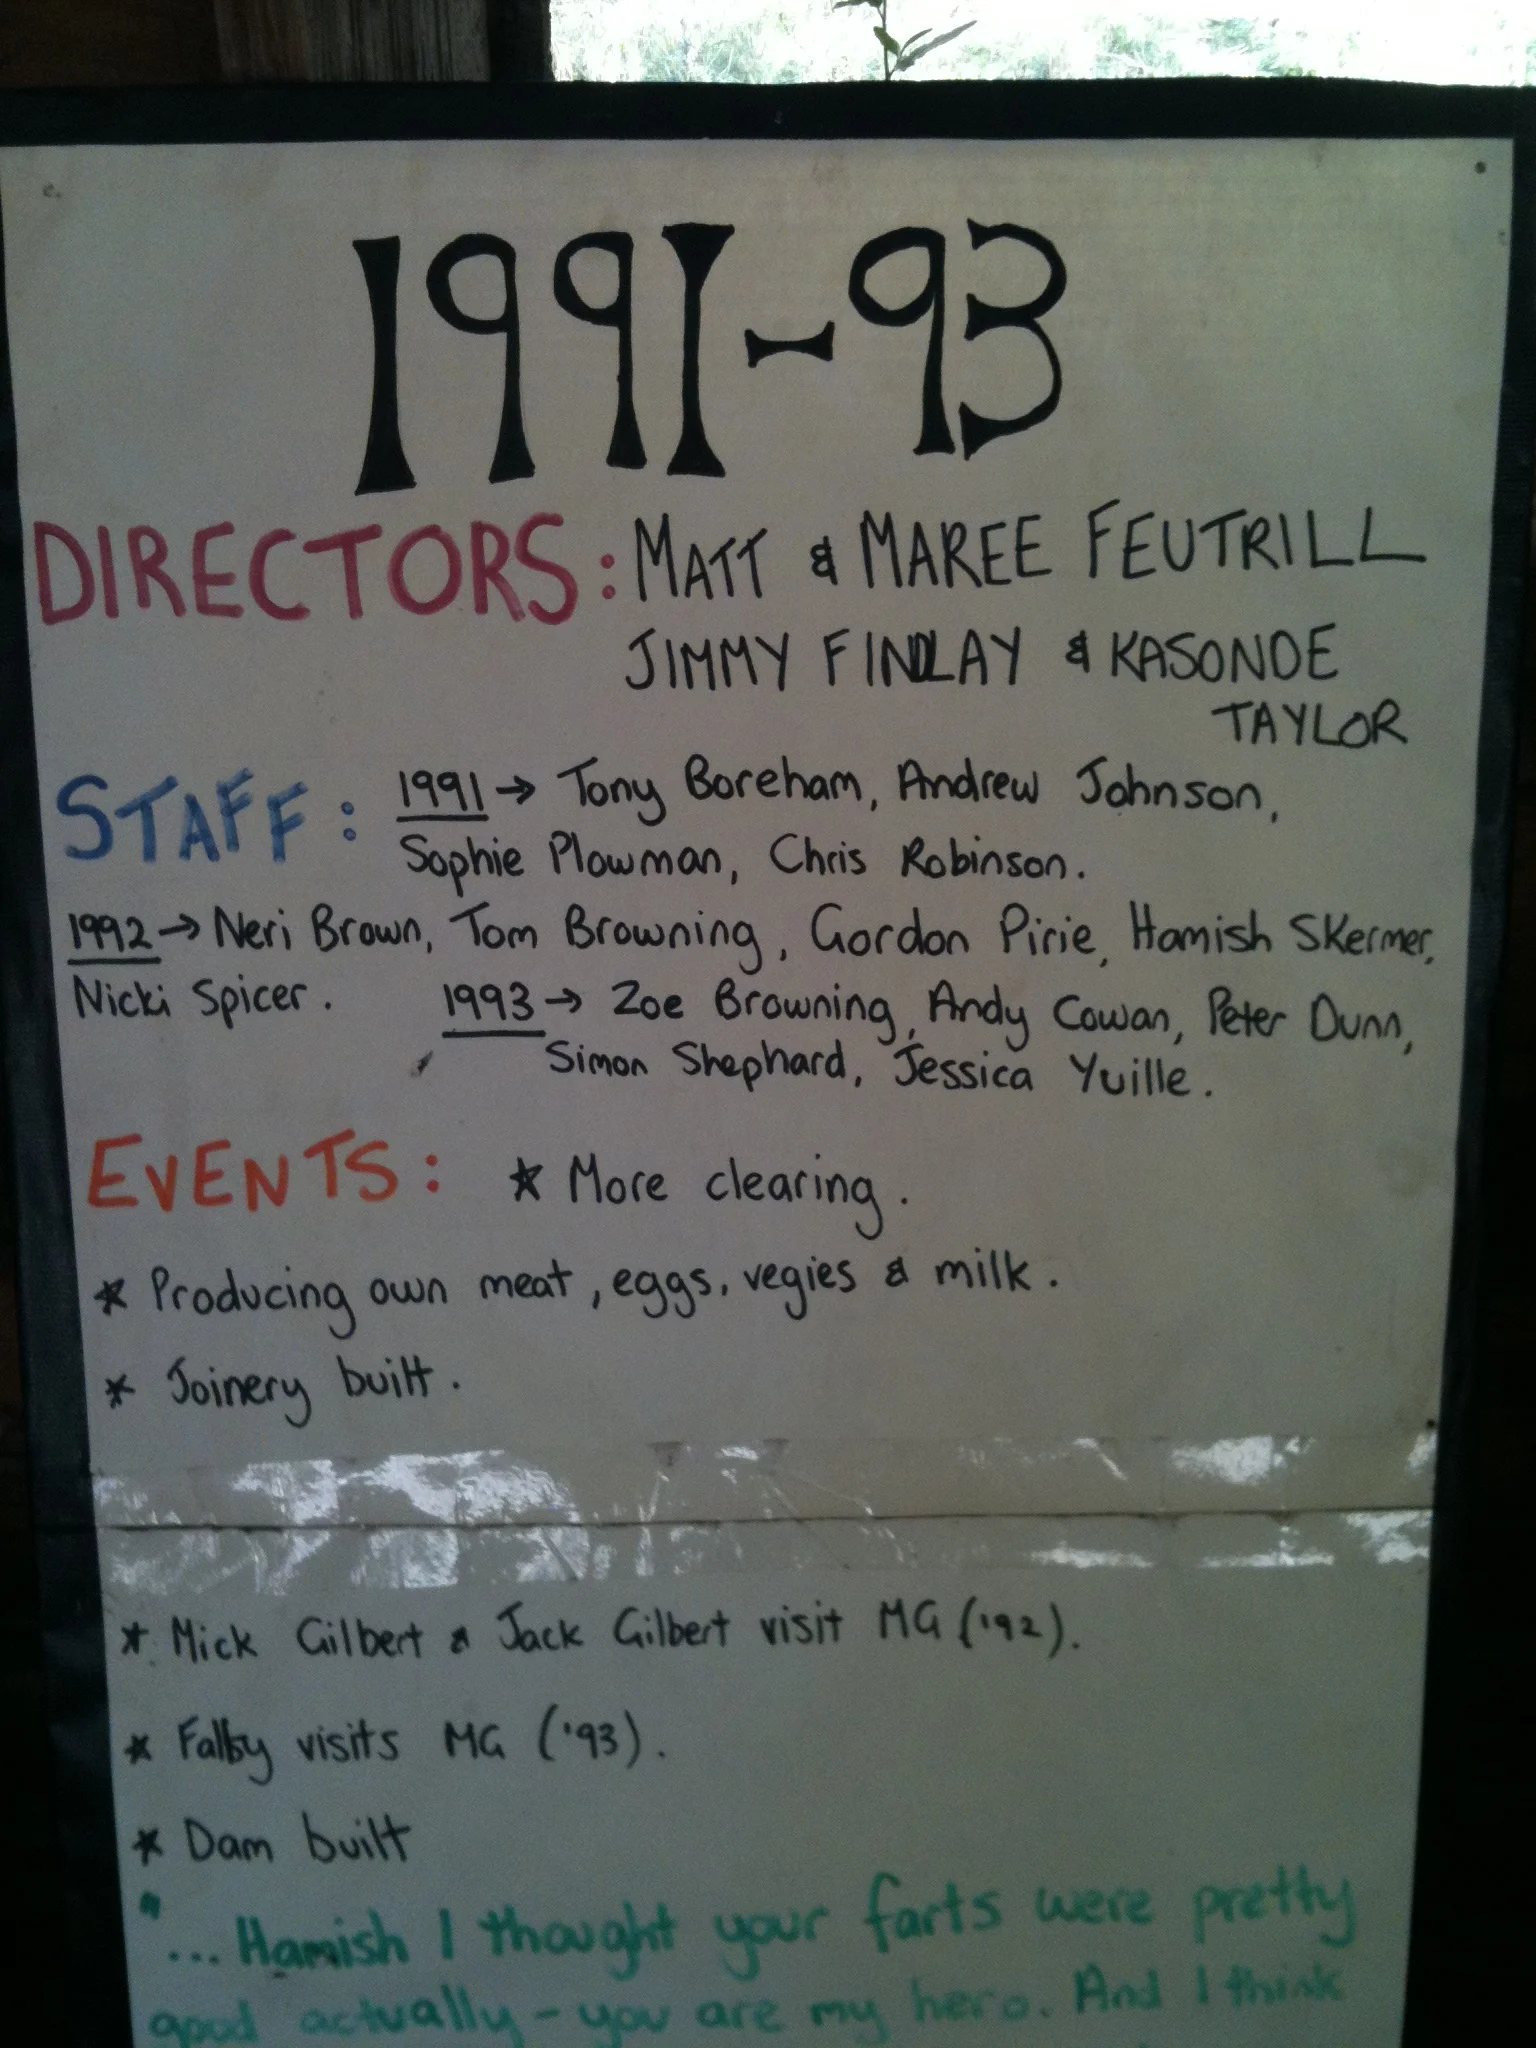 1991-93
DIRECTORS: MATT & MAREE FEUTRILL
JIMMY FINDLAY & KASONDE
TAYLOR
STAFF: 1991 → Tony Boreham, Andrew Johnson,
Sophie Plowman, Chris Robinson.
1992 → Neri Brown, Tom Browning, Gordon Pirie, Hamish Skermer,
Nicki Spicer. 1993 → Zoe Browning, Andy Cowan, Peter Dunn,
Simon Shephard, Jessica Yuille.
EVENTS: * More clearing.
* Producing own meat, eggs, vegies & milk.
* Joinery built.
* Mick Gilbert & Jack Gilbert visit MG ('92).
* Falby visits MG ('93).
* Dam built
"... Hamish I thought your farts were pretty
good actually - you are my hero. And I think